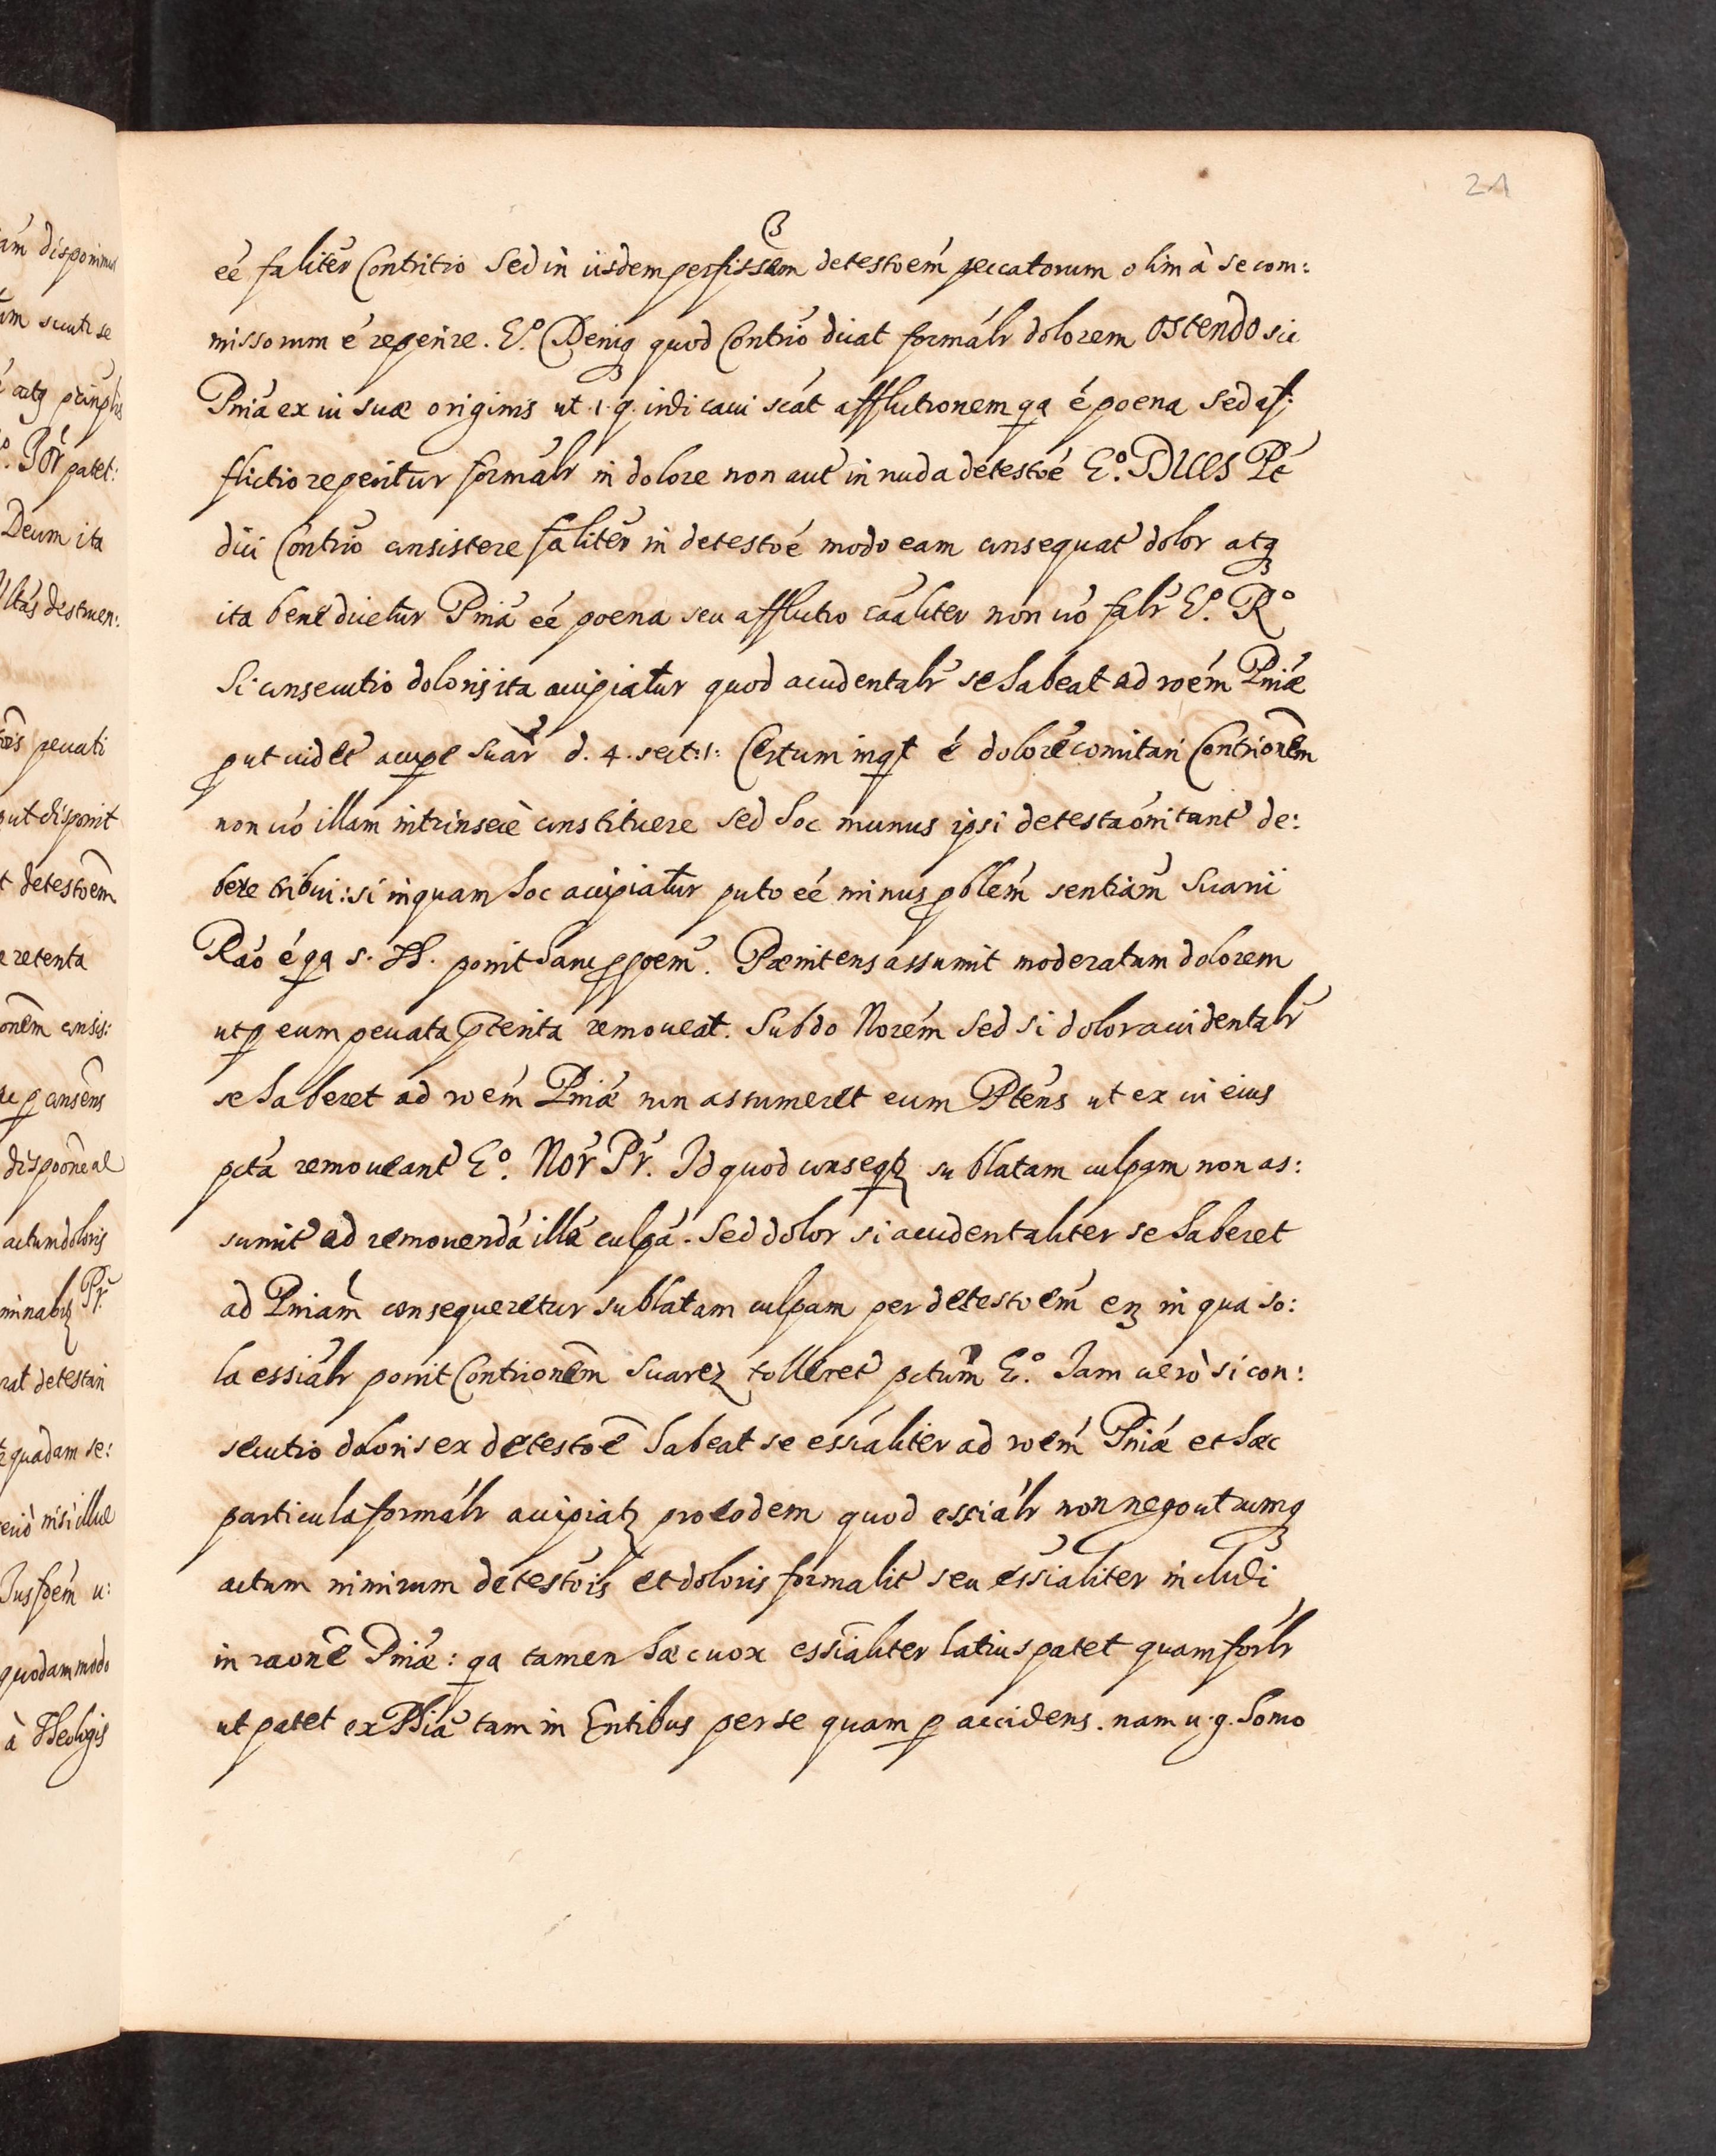 21
eé faliter Contritio Sed in iisdem perfissam detestoém peccatorum olim à se com:
missorum é reperire. E.º Deniq quod Contrio dicat formalr dolorem OSTENDO sic
Pniã ex ui suæ originis ut .1. q. indicaui scát afflictionem qa é poena Sed af:
flictio reperitur formalr in dolore non aut in nuda detestoé E.º DICES Pt
dici Contrio consistere faliter in detestoé modo eam consequat dolor atq
ita bene dicetur Pniã eé poena seu afflictio caaliter non uó falr E.º Rº
Si consecutio doloris ita accipiatur quod accidentalr se habeat ad roém Pniæ
put uidet accipe Suar d. 4. sect: 1: Certum inqt é doloré comitari Contrionem
non uó illam intrinsecè constituere sed hoc munus ipsi detestaóni tant de:
bere tribui: si inquam hoc accipiatur puto eé minus pblem sentiam Suarii
Raó é qa S. Th. ponit hanc ppoem. Pænitens assumit moderatum dolorem
ut p eum peccata pterita remoueat. Subdo Norem Sed si dolor accidentalr
se haberet ad roém Pniæ non assumeret eum Ptens ut ex ui eius
pctá remoueant E.º Nor Pr. Id quod conseqtz sublatam culpam non as:
sumit ad remouendá illá culpá. Sed dolor si accidentaliter se haberet
ad Pniam consequeretur sublatam culpam per detestoém ez in qua so:
la essialr ponit Contrionem Suarez tolleret pctum E.º Iam uerò si con:
secutio doloris ex detestoé habeat se essialiter ad roém Pniæ et hæc
particula formalr accipiatz pro eodem quod essialr non nego utrumq
actum nimirum detestois et doloris formalit seu essialiter includi
in raoné Pniæ: qa tamen hæc uox essialiter latius patet quam forlr
ut patet ex Phiá tam in Entibus per se quam p accidens. nam u. g. homo